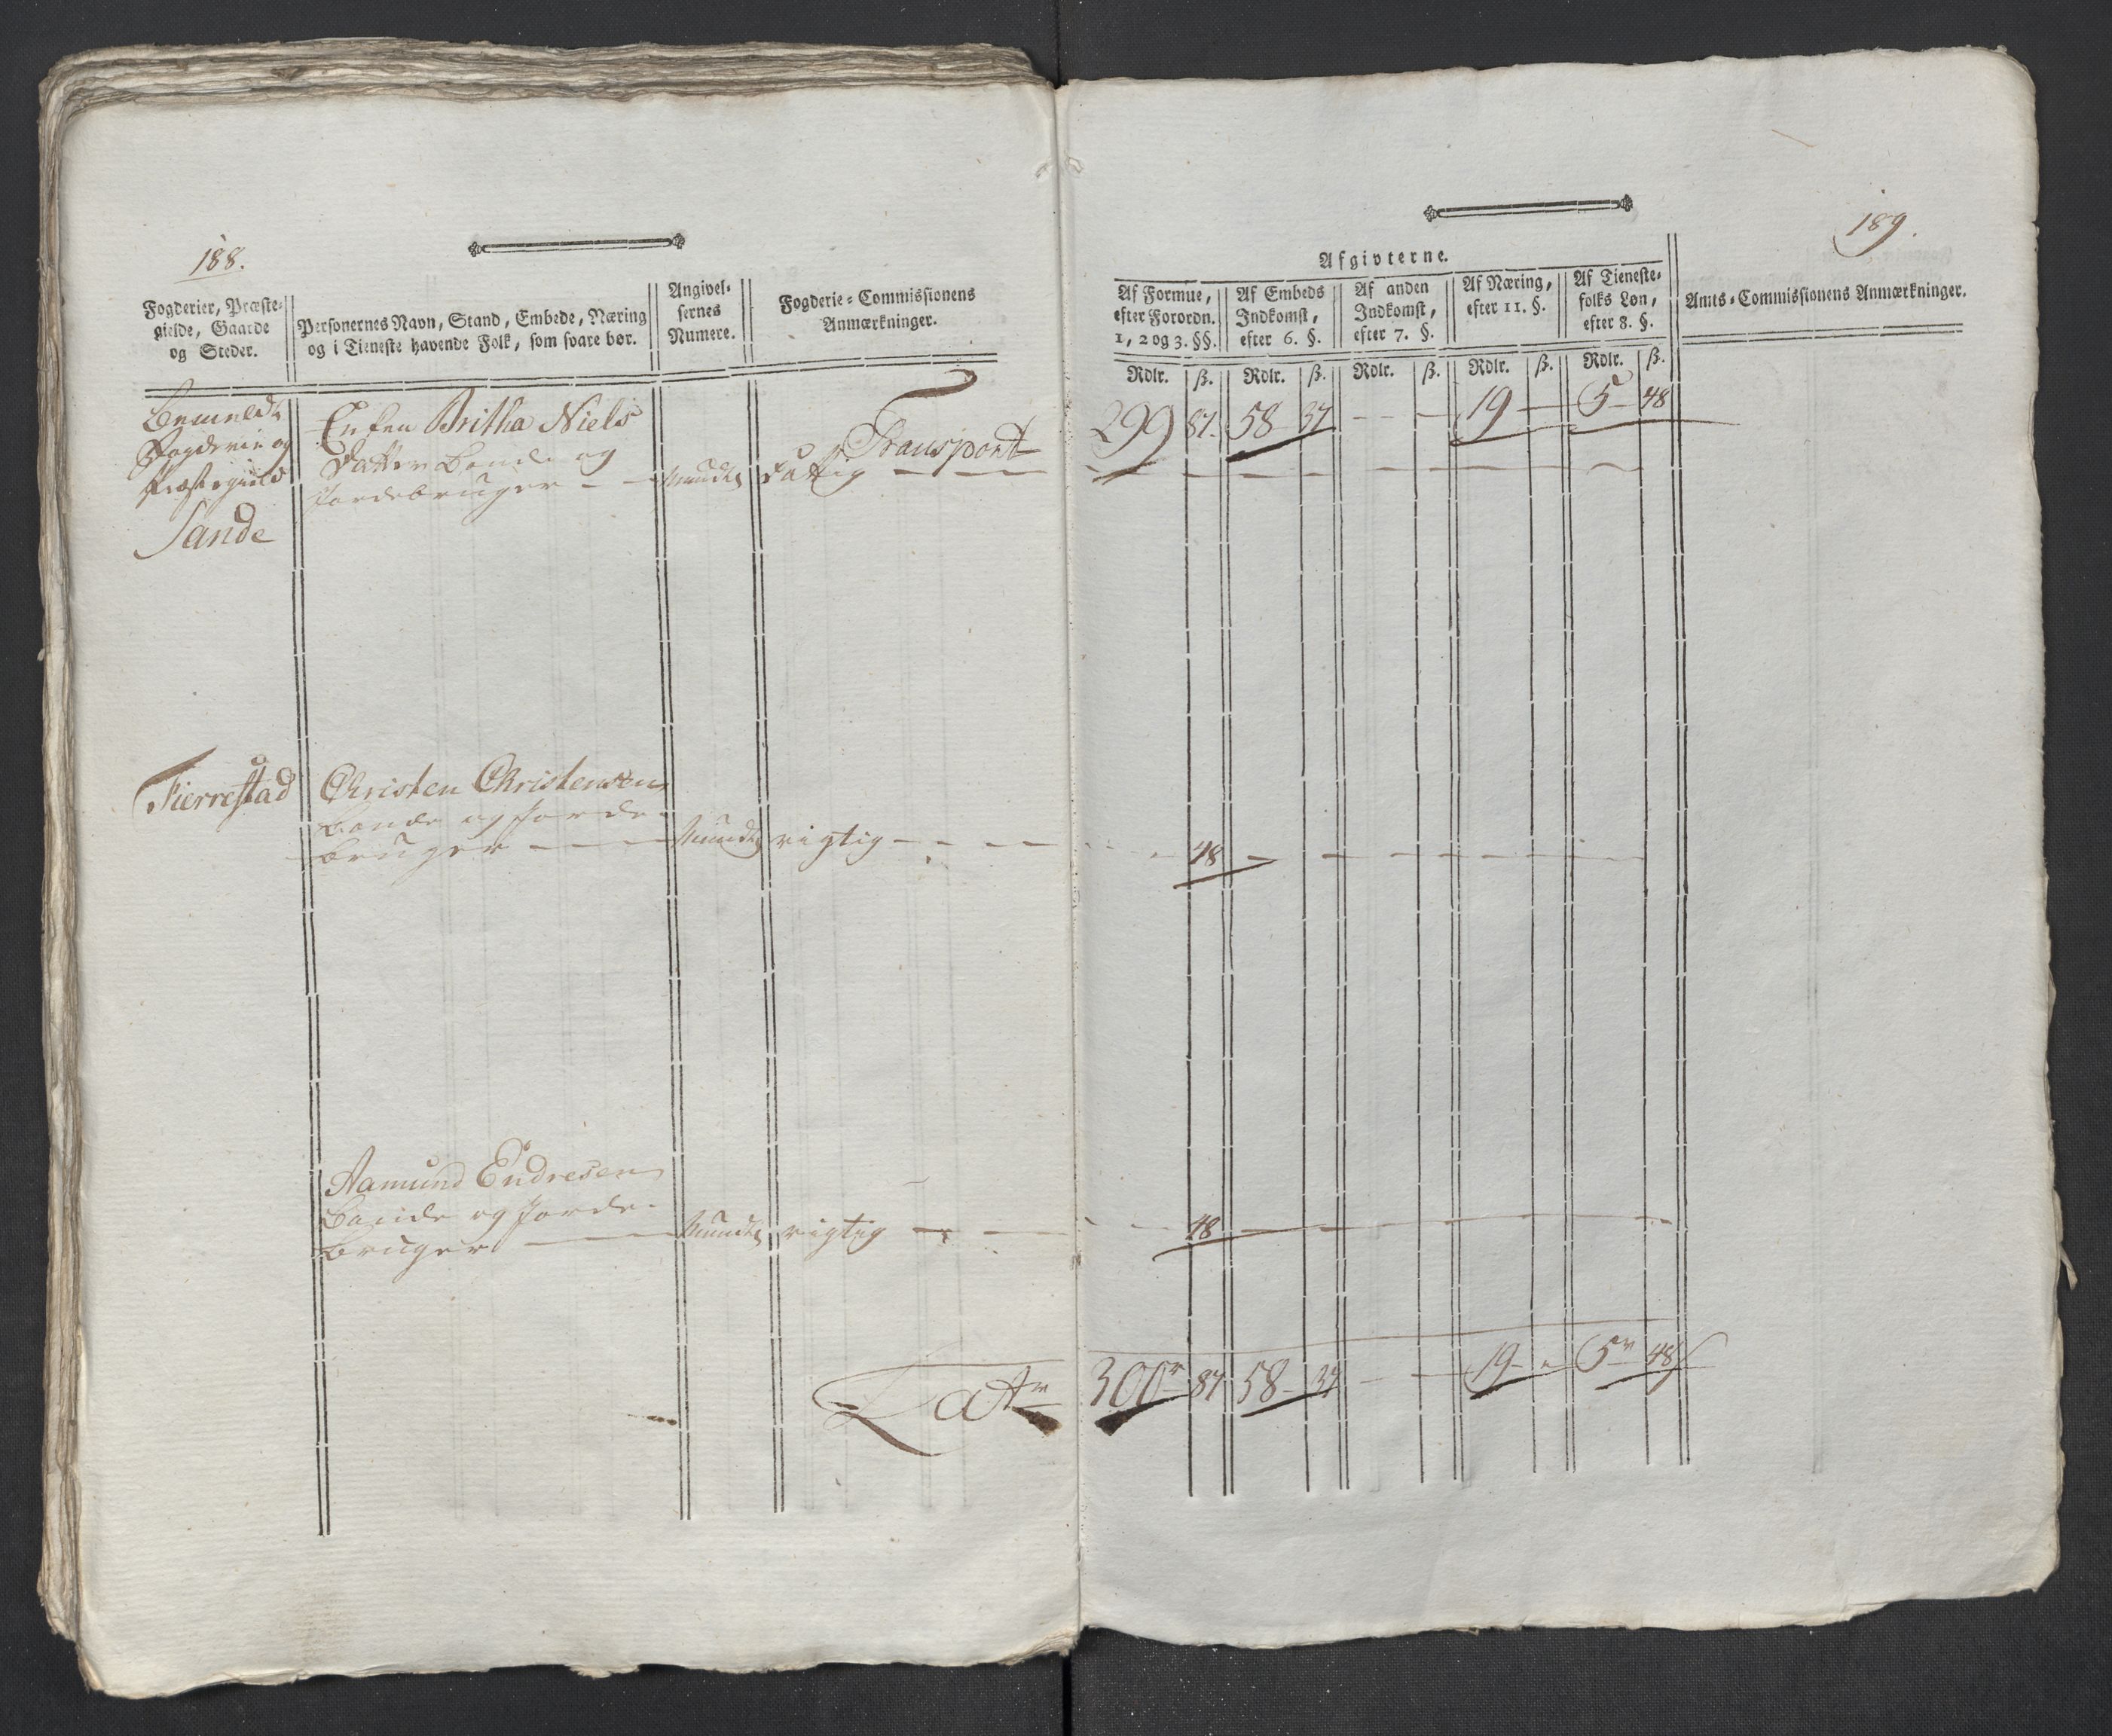 188.
Fogderier, Præste-
gielde, Gaarde
og Steder.
Personernes Navn, Stand, Embede, Næring
og i Tieneste havende Folk, som svare bør.
Angivel-
sernes
Numere.
Fogderie-Commissionens
Anmærkninger.
Bemeldte
Fogderie og
Præstegield
Sande
Enken Britha Niels
Datter Bonde og
Jordebruger — Mundtl. Fattig — —
Transport
Fierrestad
Christen Christensen
Bonde og Jorde-
bruger — — Mundtl. rigtig — — —
Aamund Endresen
Bonde og Jorde-
bruger — Mundtl. rigtig — —
Lat
189.
Afgivterne.
Af Formue,
efter Forordn.
1, 2 og 3. §§.
Af Embeds
Indkomst,
efter 6. §.
Af anden
Indkomst,
efter 7. §.
Af Næring,
efter 11. §.
Af Tieneste-
folks Løn,
efter 8. §.
Amts-Commissionens Anmærkninger.
Rdlr. ß. Rdlr. ß. Rdlr. ß. Rdlr. ß. Rdlr. ß.
299 87. 58 37 — — 19 — 5 48
48
48
300 87 58 37 — — 19 — 5 48